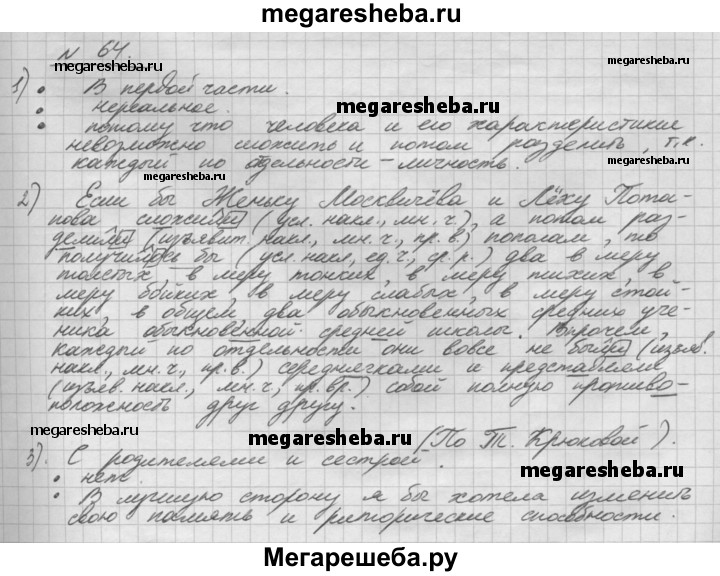 megaresheba.ru
N 64.
megaresheba.ru
1) • В первой части.
megaresheba.ru
• нереальное.
megaresheba.ru
• потому что человека и его характеристики
невозможно сложить и потом разделить, т.к.
megaresheba.ru
каждый по отдельности – личность.
megaresheba.ru
2) Если бы Женьку Москвичёва и Лёху Пота-
пова сложили (усл. накл., мн. ч.), а потом раз-
делили (изъявит. накл., мн. ч., пр. в.) пополам, то
получилось бы (усл. накл., ед. ч., ср. р.) два в меру
толстых, в меру тонких, в меру тихих, в
меру бойких, в меру слабых, в меру стой-
ких, в общем, два обыкновенных средних уче-
ника обыкновенной средней школы. Впрочем,
каждый по отдельности они вовсе не были (изъяв.
накл., мн. ч., пр. в.) середнячками и представляли
(изъяв. накл., мн. ч., пр. вр.) собой полную противо-
положность друг другу.
megaresheba.ru
megaresheba.ru
(По Т. Крюковой).
3). С родителями и сестрой.
megaresheba.ru
• нет.
megaresheba.ru
• В лучшую сторону я бы хотела изменить
свою память и риторические способности.
Мегарешеба.ру